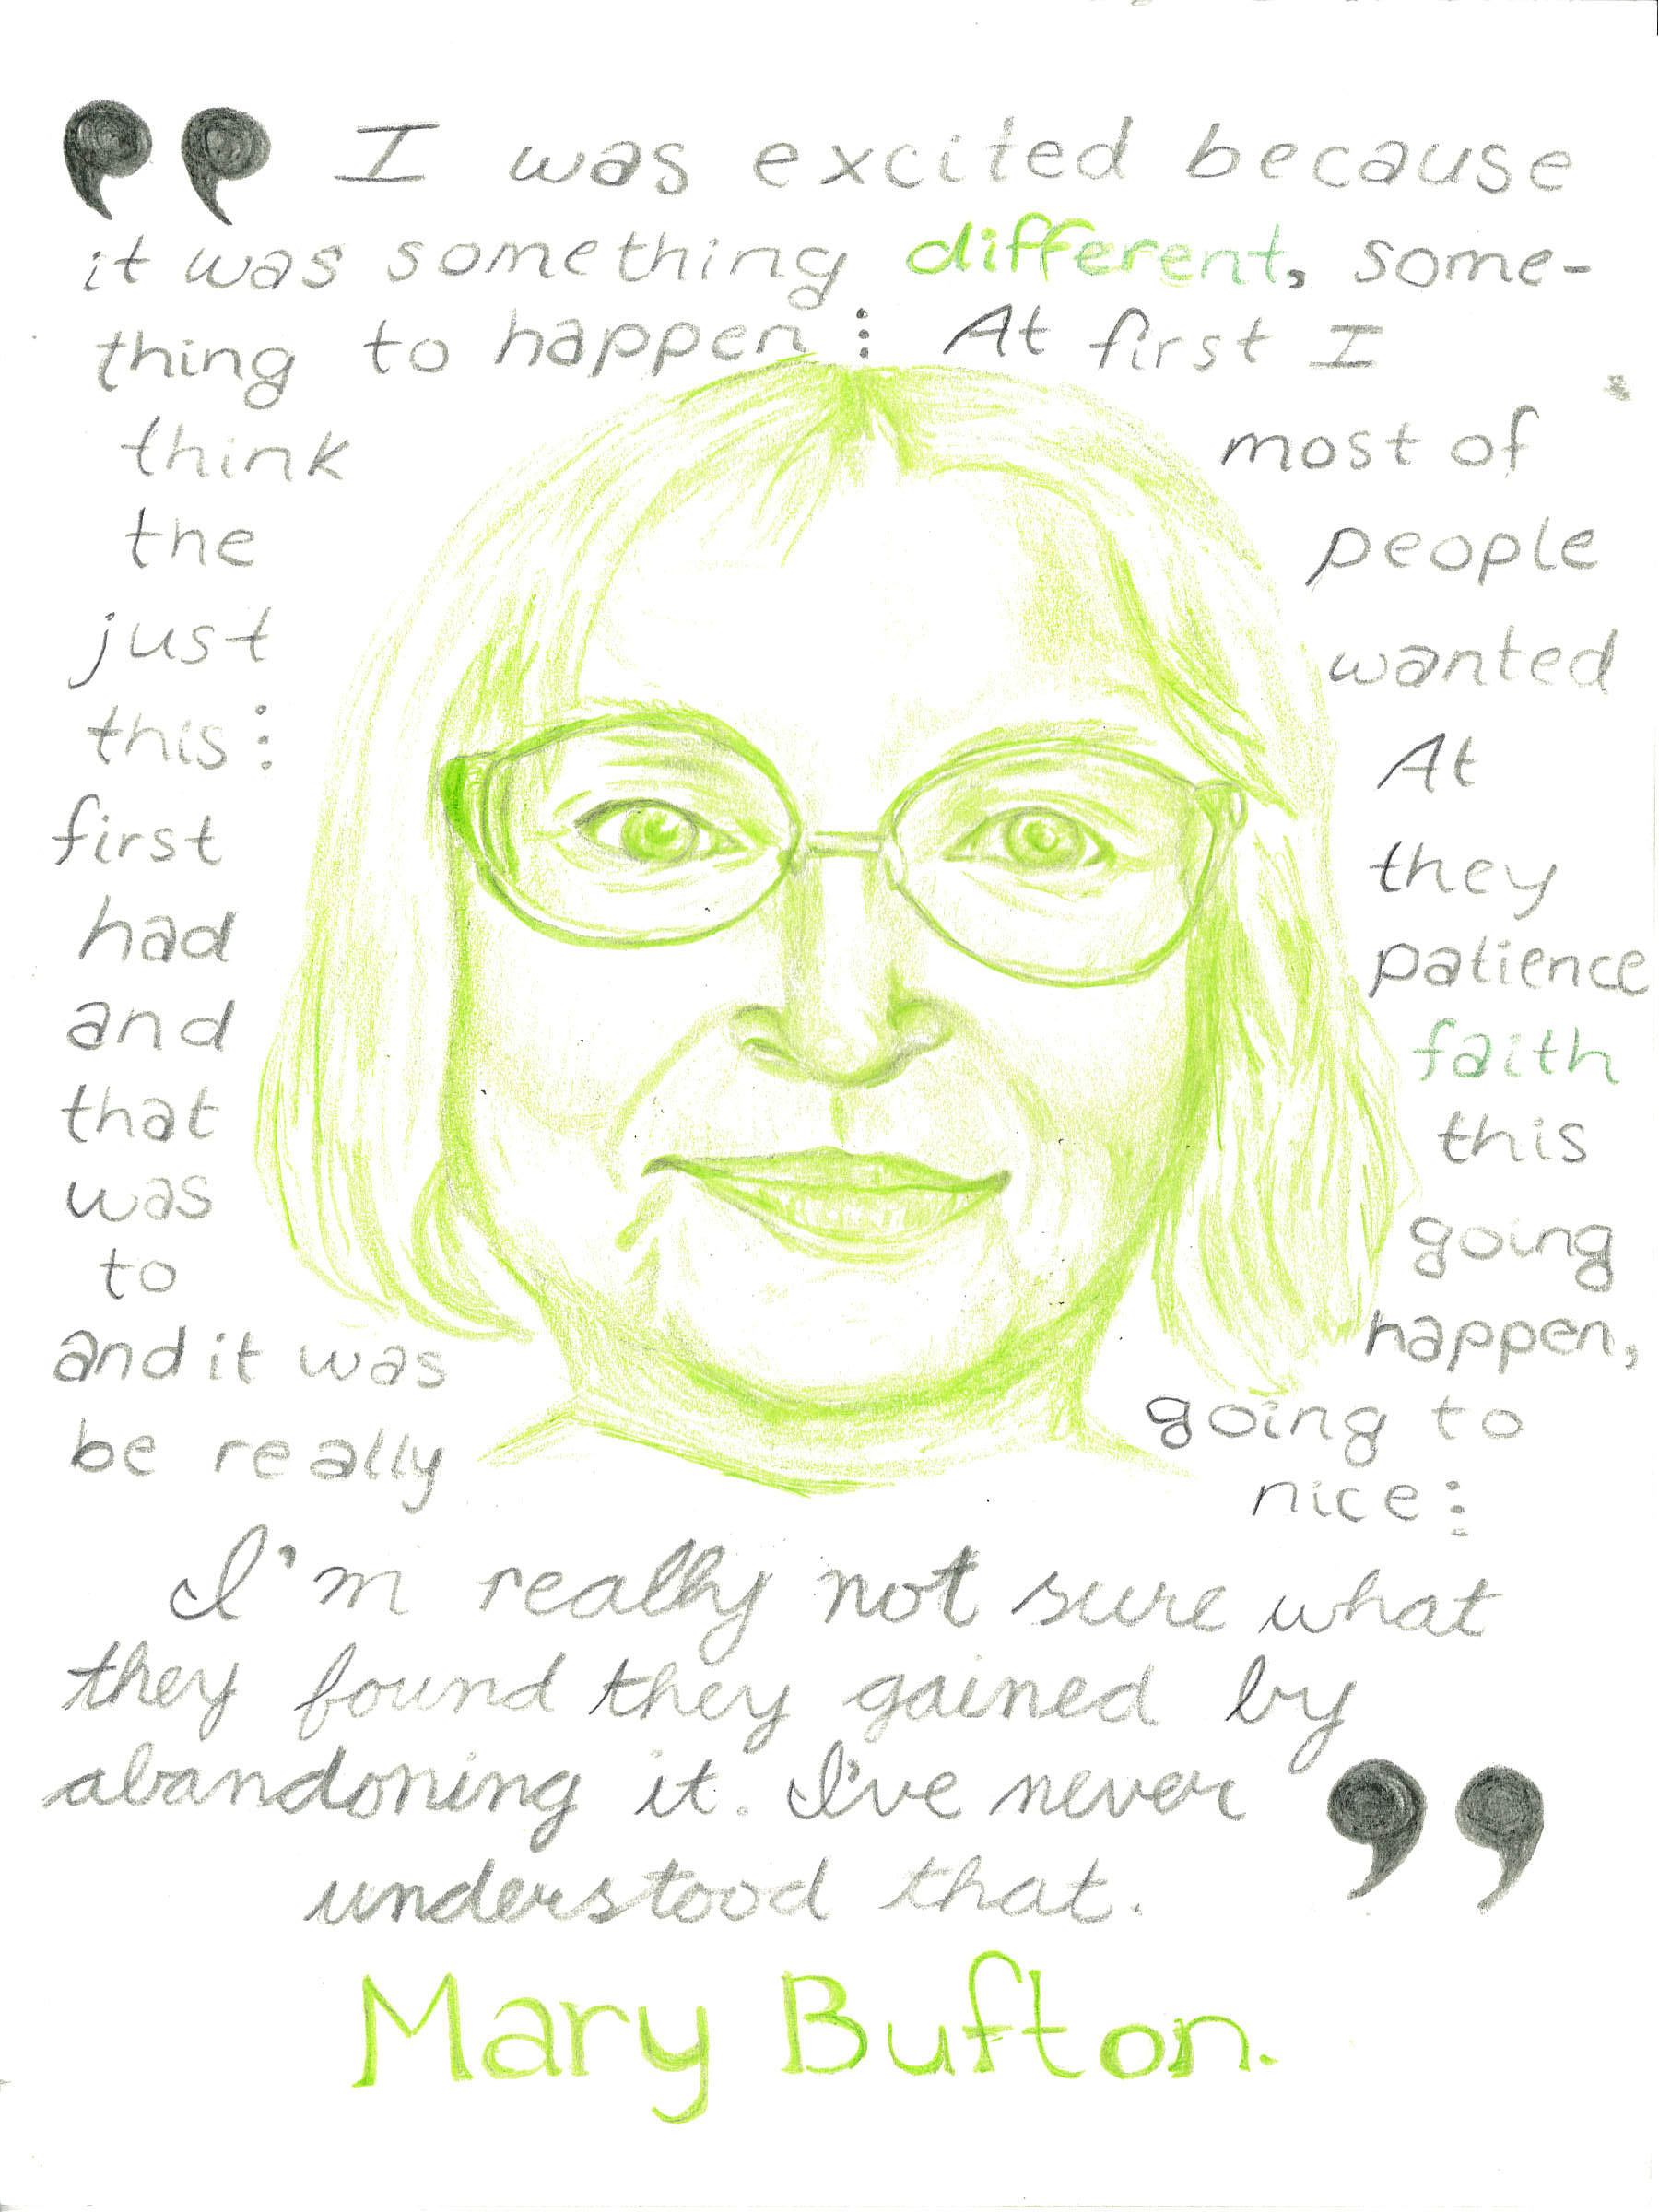 I was excited because
it was something different, some-
thing to happen⋮ At first I
think most of
the people
just wanted
this⋮ At
first they
had patience
and faith
that this
was going
to happen,
and it was going to
be really nice⋮
I'm really not sure what
they found they gained by
abandoning it. I've never
understood that.
Mary Bufton.